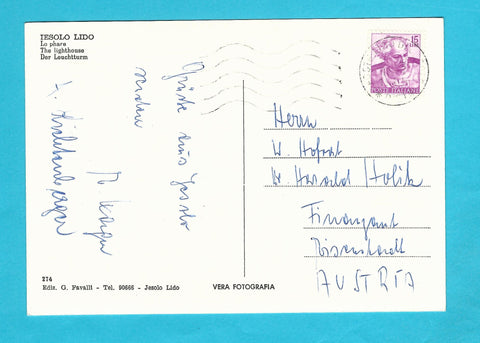 IESOLO LIDO
Lo phare
The lighthouse
Der Leuchtturm
Grüße aus Jesolo
senden
15
LIRE
POSTE ITALIANE
Herrn
W. Hofrat
Dr Harald Holik
Finanzamt
Eisenstadt
AUSTRIA
274
Ediz. G. Favalli - Tel. 90666 - Jesolo Lido
VERA FOTOGRAFIA